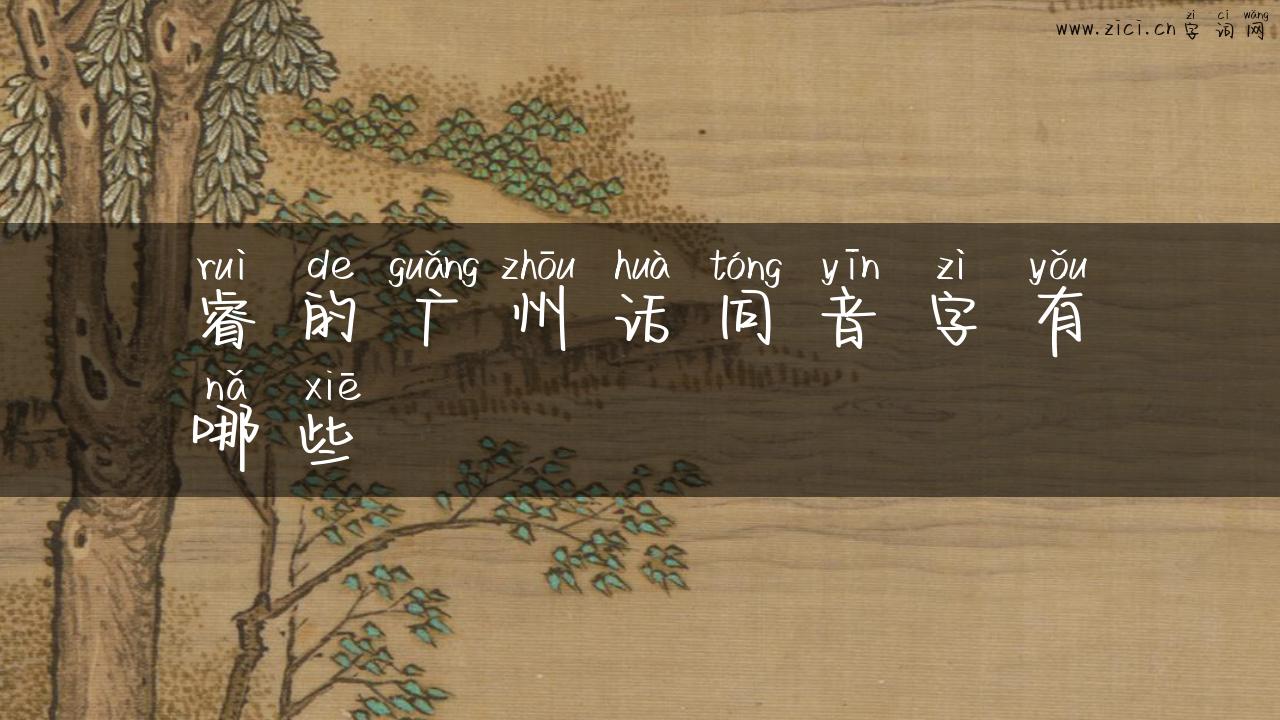 zì cí wǎng
www.zici.cn 字词网
ruì de guǎng zhōu huà tóng yīn zì yǒu
睿的广州话同音字有
nǎ xiē
哪些